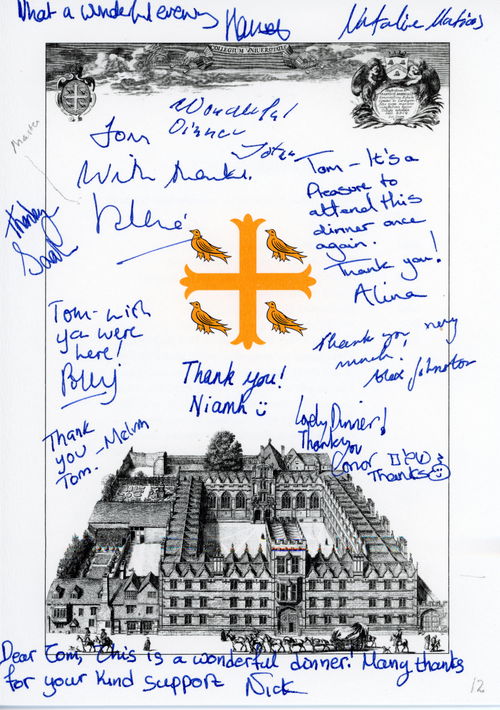 What a wonderful evening
Natalie
COLLEGIUM UNIVERSITATIS
Wonderful
Dinner
Tom
With thanks.
Master
Tom - It's a
Pleasure to
attend this
dinner once
again.
Thank you!
Alina
Tom - wish
you were
here!
Thank you very
much!
Alex Johnston
Thank you!
Niamh
Thank
you - Melvin
Tom.
Lovely Dinner!
Thank you
Conor
Thanks
Dear Tom, this is a wonderful dinner! Many thanks
for your kind support Nick
12